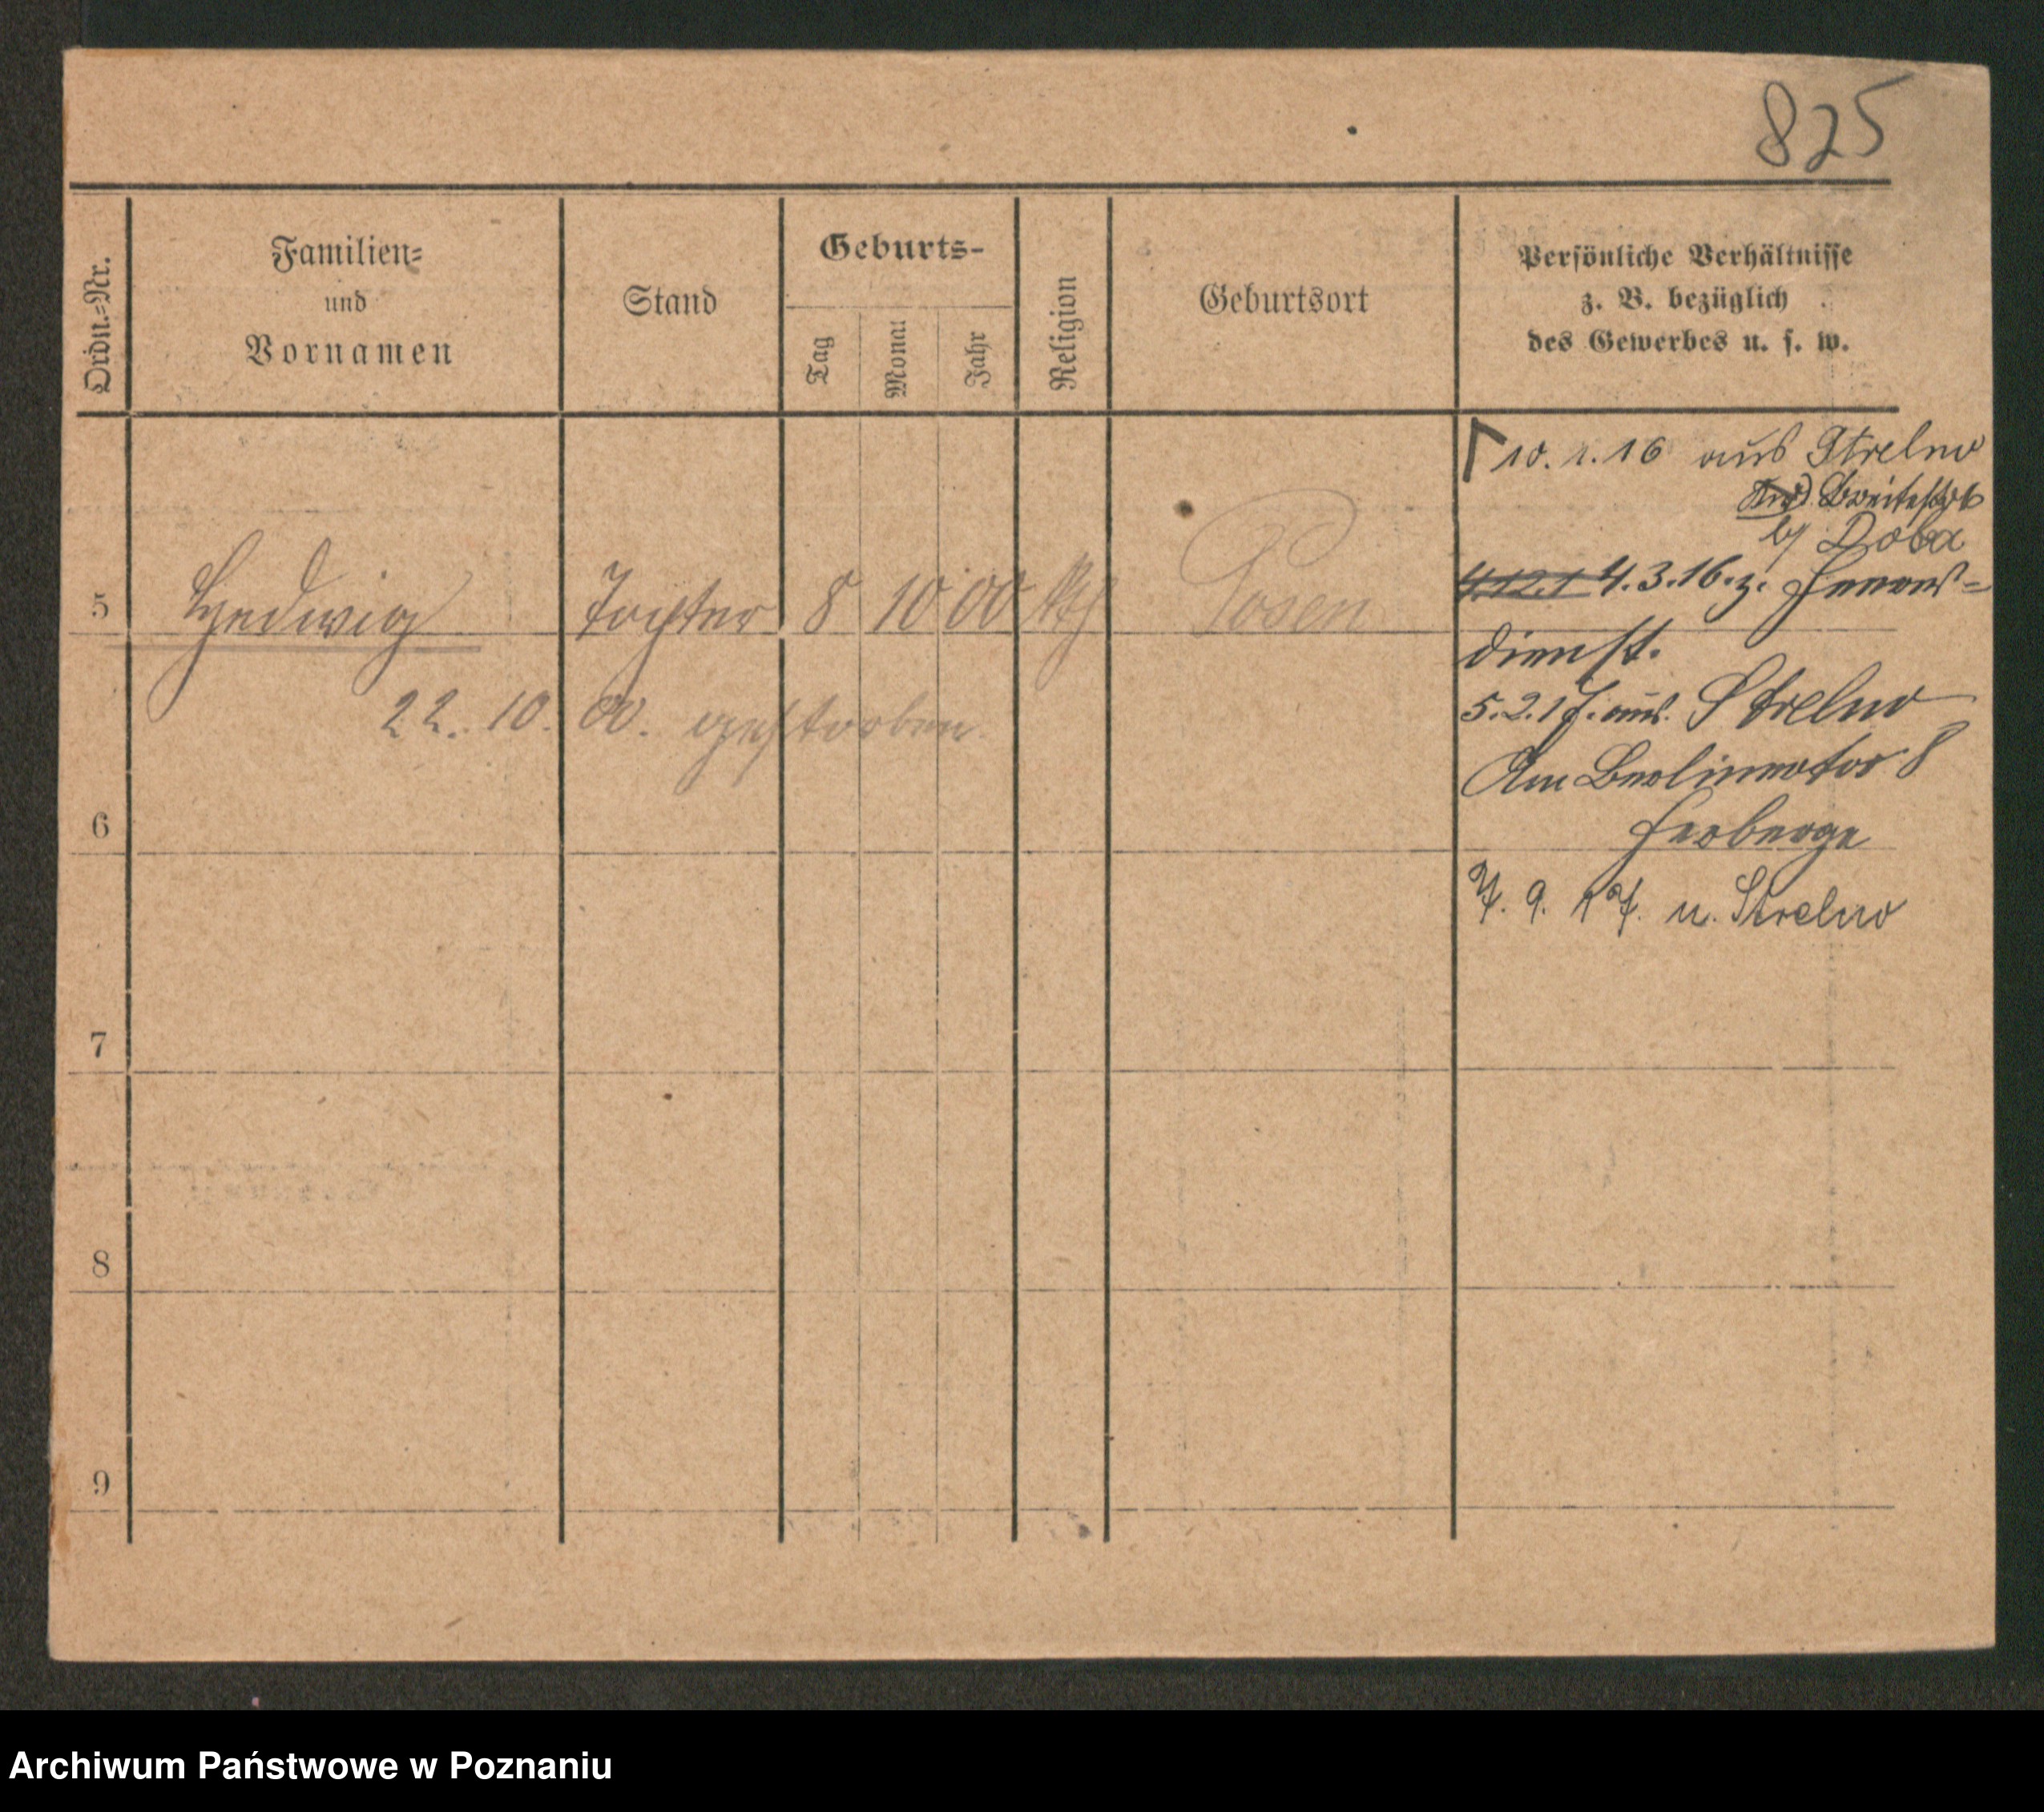 825
Ordn.-Nr.
Familien-
und
Vornamen
Stand
Geburts-
Tag
Monat
Jahr
Religion
Geburtsort
Persönliche Verhältnisse
z. B. bezüglich
des Gewerbes u. s. w.
10. 1. 16 aus Strelno
Breitestr
b/ Doba
4.12.1 4.3.16. z. Heeres-
dienst.
5 Hedwig Tochter 8 10 00 kth Posen
5.2.17. aus. Strelno
22. 10. 00. gestorben.
Am Berlinertor 8
Herberge
6
7. 9. 17. n. Strelno
7
8
9
Archiwum Państwowe w Poznaniu